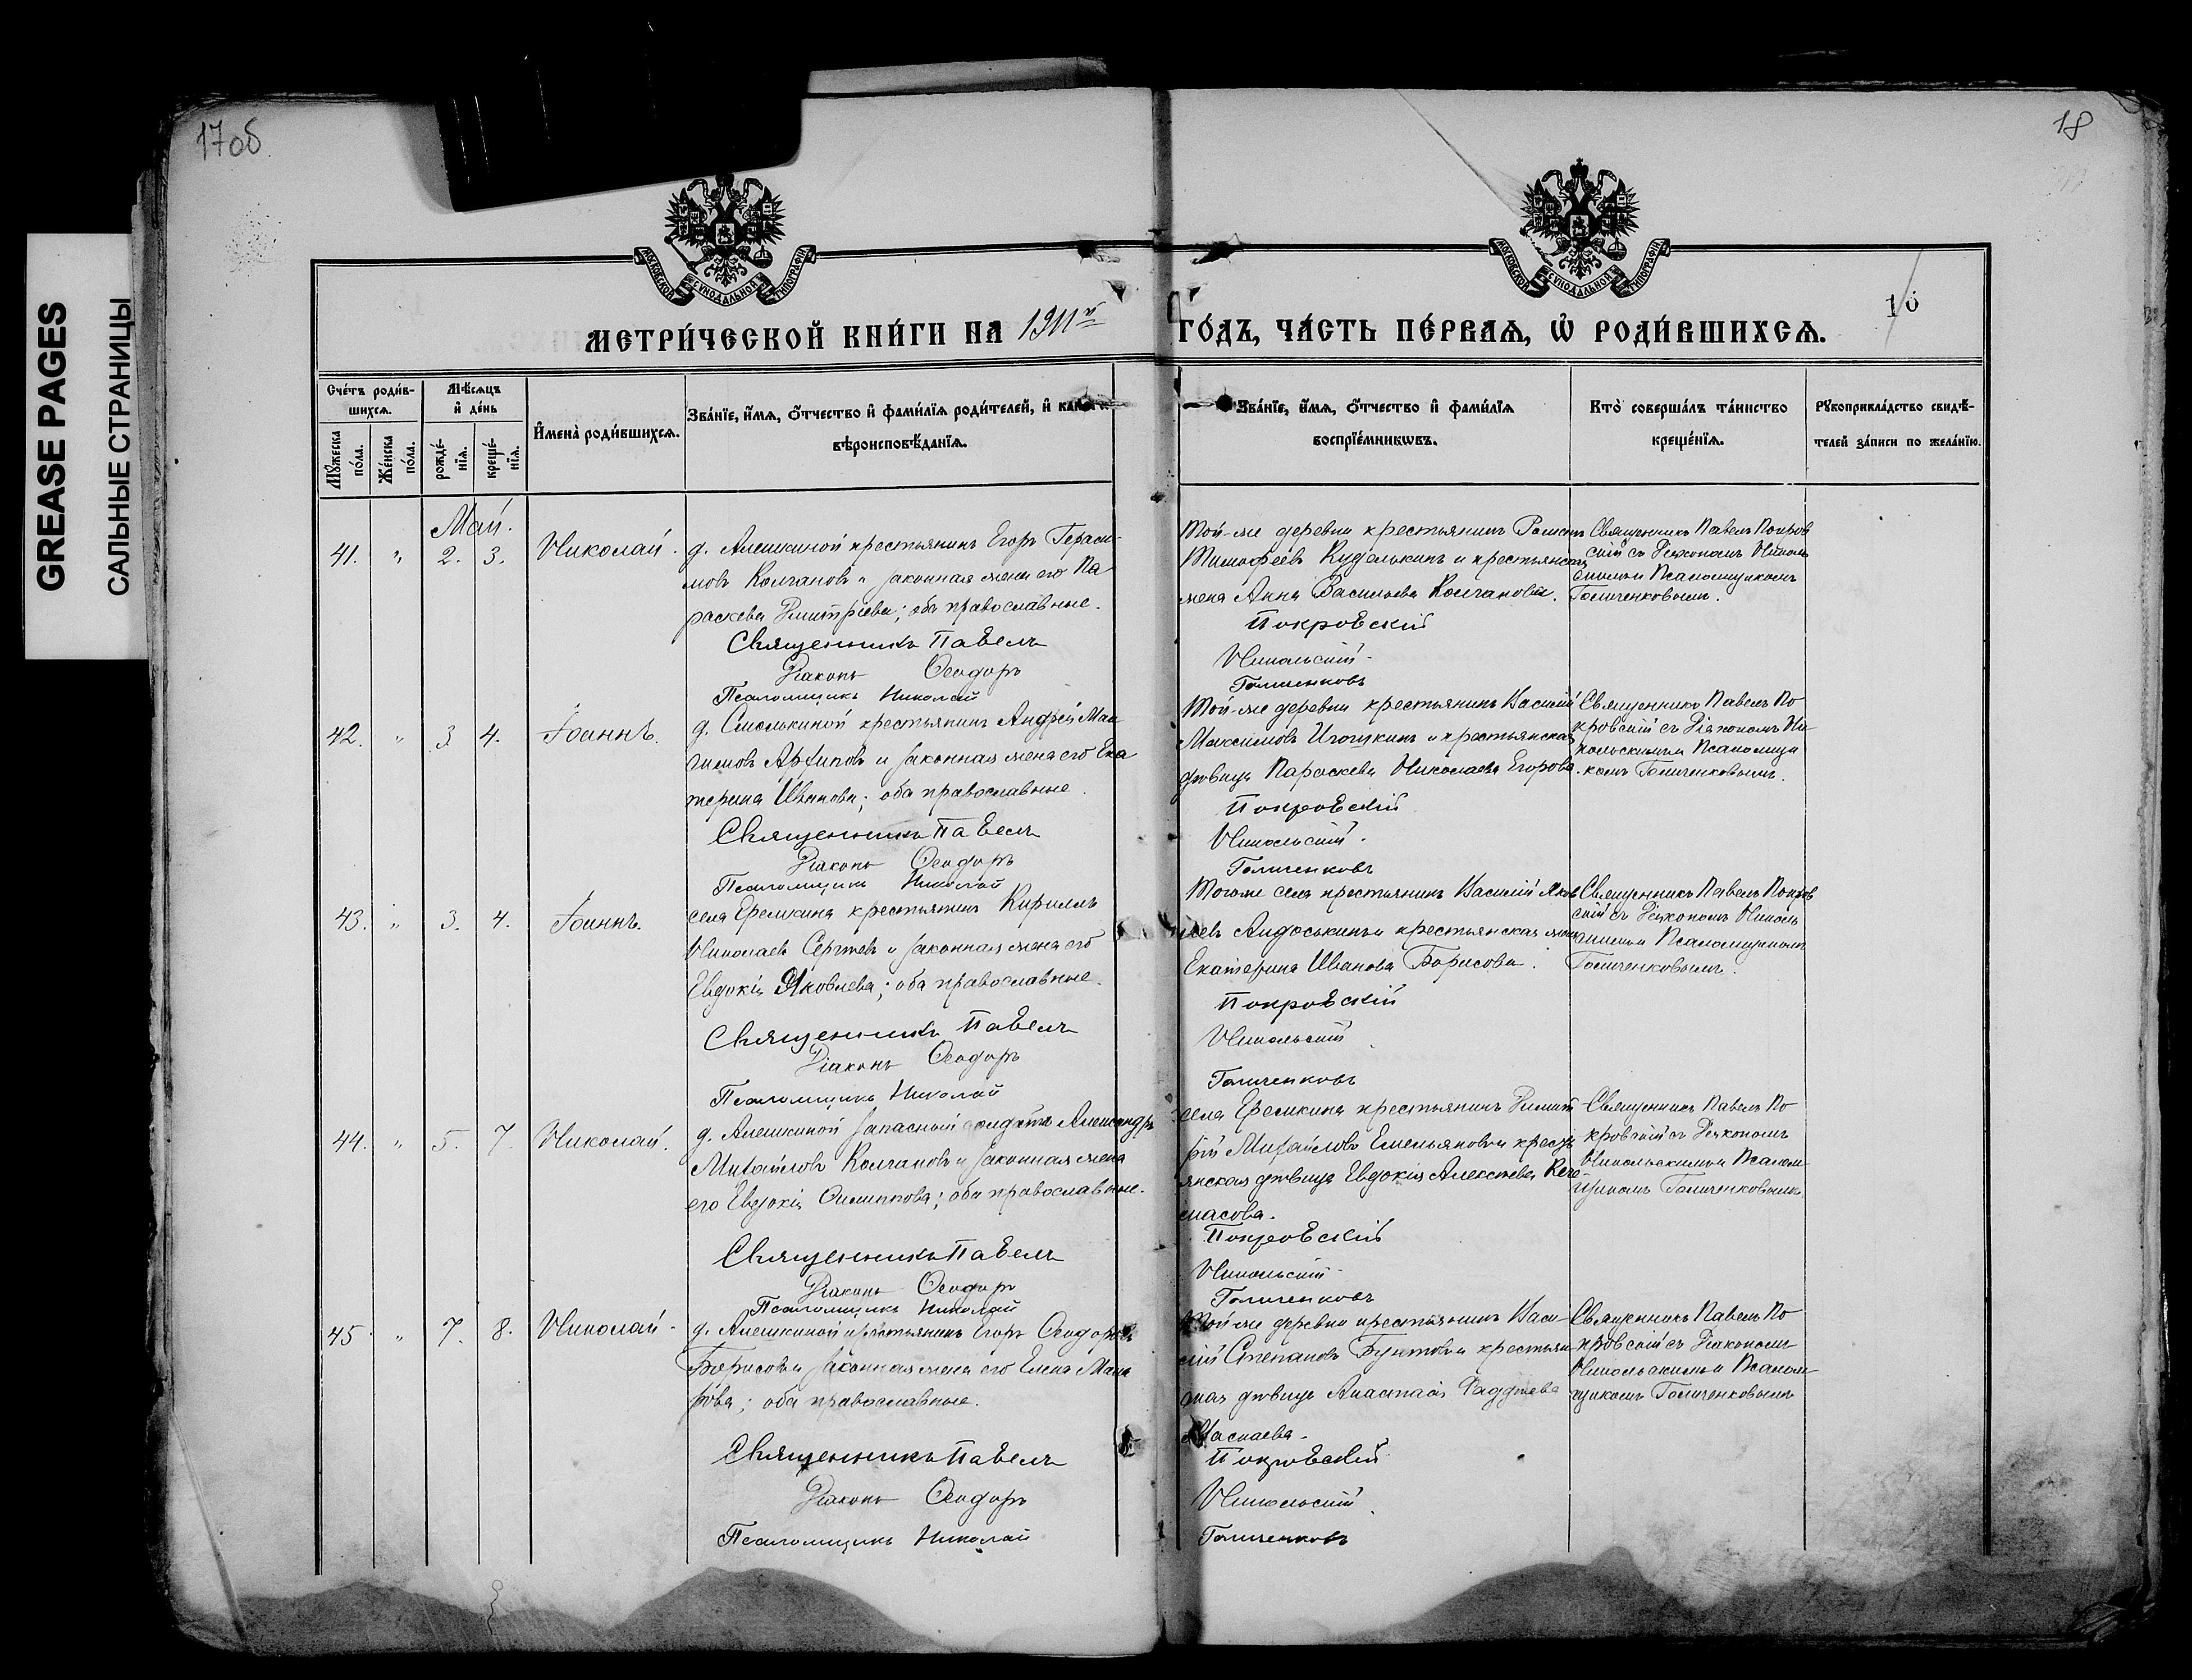 GREASE PAGES
САЛЬНЫЕ СТРАНИЦЫ
17об
18
МОСКОВСКОЙ СѴНОДАЛЬНОЙ ТИПОГРАФІИ
МОСКОВСКОЙ СѴНОДАЛЬНОЙ ТИПОГРАФІИ
МЕТРИ́ЧЕСКОЙ КНИ́ГИ НА 1911й
ГО́ДЪ, ЧА́СТЬ ПЕ́РВАѦ, Ѽ РОДИ́ВШИХСѦ.
Сче́тъ роди́в-
шихсѧ.
Мѣ́сѧцъ
и҆ де́нь
Мꙋ́жеска
по́ла.
Же́нска
по́ла.
рожде́-
нїѧ.
креще́-
нїѧ.
И҆мена̀ роди́вшихсѧ.
Зва́нїе, и҆́мѧ, ѻ҆́тчество и҆ фами́лїѧ роди́телей, и҆ како́гѡ
вѣроисповѣ́данїѧ.
Зва́нїе, и҆́мѧ, ѻ҆́тчество и҆ фами́лїѧ
воспрїе́мникѡвъ.
Кто̀ соверша́лъ та́инство
креще́нїѧ.
Рꙋкоприкла́дство свидѣ́-
телей за́писи по жела́нїю.
Май.
41. " 2. 3. Николай.
д. Алешкиной крестьянинъ Егоръ Гераси-
мовъ Колчановъ и законная жена его Па-
раскева Димитріева; оба православные.
Священникъ Павелъ
Діаконъ Ѳеодоръ
Псаломщикъ Николай
Той-же деревни крестьянинъ Романъ
Тимофеевъ Куделькинъ и крестьянская
жена Анна Васильева Колчанова.
Покровскій
Никольскій
Голиченковъ
Священникъ Павелъ Покров
скій съ Діакономъ Николь
скимъ и Псаломщикомъ
Голиченковымъ.
42. " 3 4. Іоаннъ.
д. Смолькиной крестьянинъ Андрей Мак
симовъ Архиповъ и законная жена его Ека
терина Иванова; оба православные.
Священникъ Павелъ
Діаконъ Ѳеодоръ
Псаломщикъ Николай
Той-же деревни крестьянинъ Василій
Максимовъ Игошкинъ и крестьянская
дѣвица Параскева Николаева Егорова.
Покровскій
Никольскій
Голиченковъ
Священникъ Павелъ По
кровскій съ Діакономъ Ни
кольскимъ и Псаломщи
комъ Голиченковымъ.
43. " 3. 4. Іоаннъ.
села Еремкина крестьянинъ Кириллъ
Николаевъ Сергѣевъ и законная жена его
Евдокія Яковлева; оба православные.
Священникъ Павелъ
Діаконъ Ѳеодоръ
Псаломщикъ Николай
Тогоже села крестьянинъ Василій Яков
левъ Андоськинъ и крестьянская жена
Екатерина Иванова Борисова.
Покровскій
Никольскій
Голиченковъ
Священникъ Павелъ Покров
скій съ Діакономъ Николь
скимъ и Псаломщикомъ
Голиченковымъ.
44. " 5. 7. Николай.
д. Алешкиной запасный солдатъ Александръ
Михайловъ Колчановъ и законная жена
его Евдокія Филиппова; оба православные.
Священникъ Павелъ
Діаконъ Ѳеодоръ
Псаломщикъ Николай
села Еремкина крестьянинъ Димит
рій Михайловъ Емельяновъ и кресть
янская дѣвица Евдокія Алексѣева
Покровскій
Никольскій
Голиченковъ
Священникъ Павелъ По
кровскій съ Діакономъ
Никольскимъ и Псалом-
щикомъ Голиченковымъ
45 " 7. 8. Николай.
д. Алешкиной крестьянинъ Егоръ Ѳеодоровъ
Борисовъ и законная жена его Елена
оба православные.
Священникъ Павелъ
Діаконъ Ѳеодоръ
Псаломщикъ Николай
Той-же деревни крестьянинъ Васи-
лій Степановъ и крестьян
ская дѣвица Анастасія Фаддѣева
Покровскій
Никольскій
Голиченковъ
Священникъ Павелъ По
кровскій съ Діакономъ
Никольскимъ и Псалом-
щикомъ Голиченковымъ